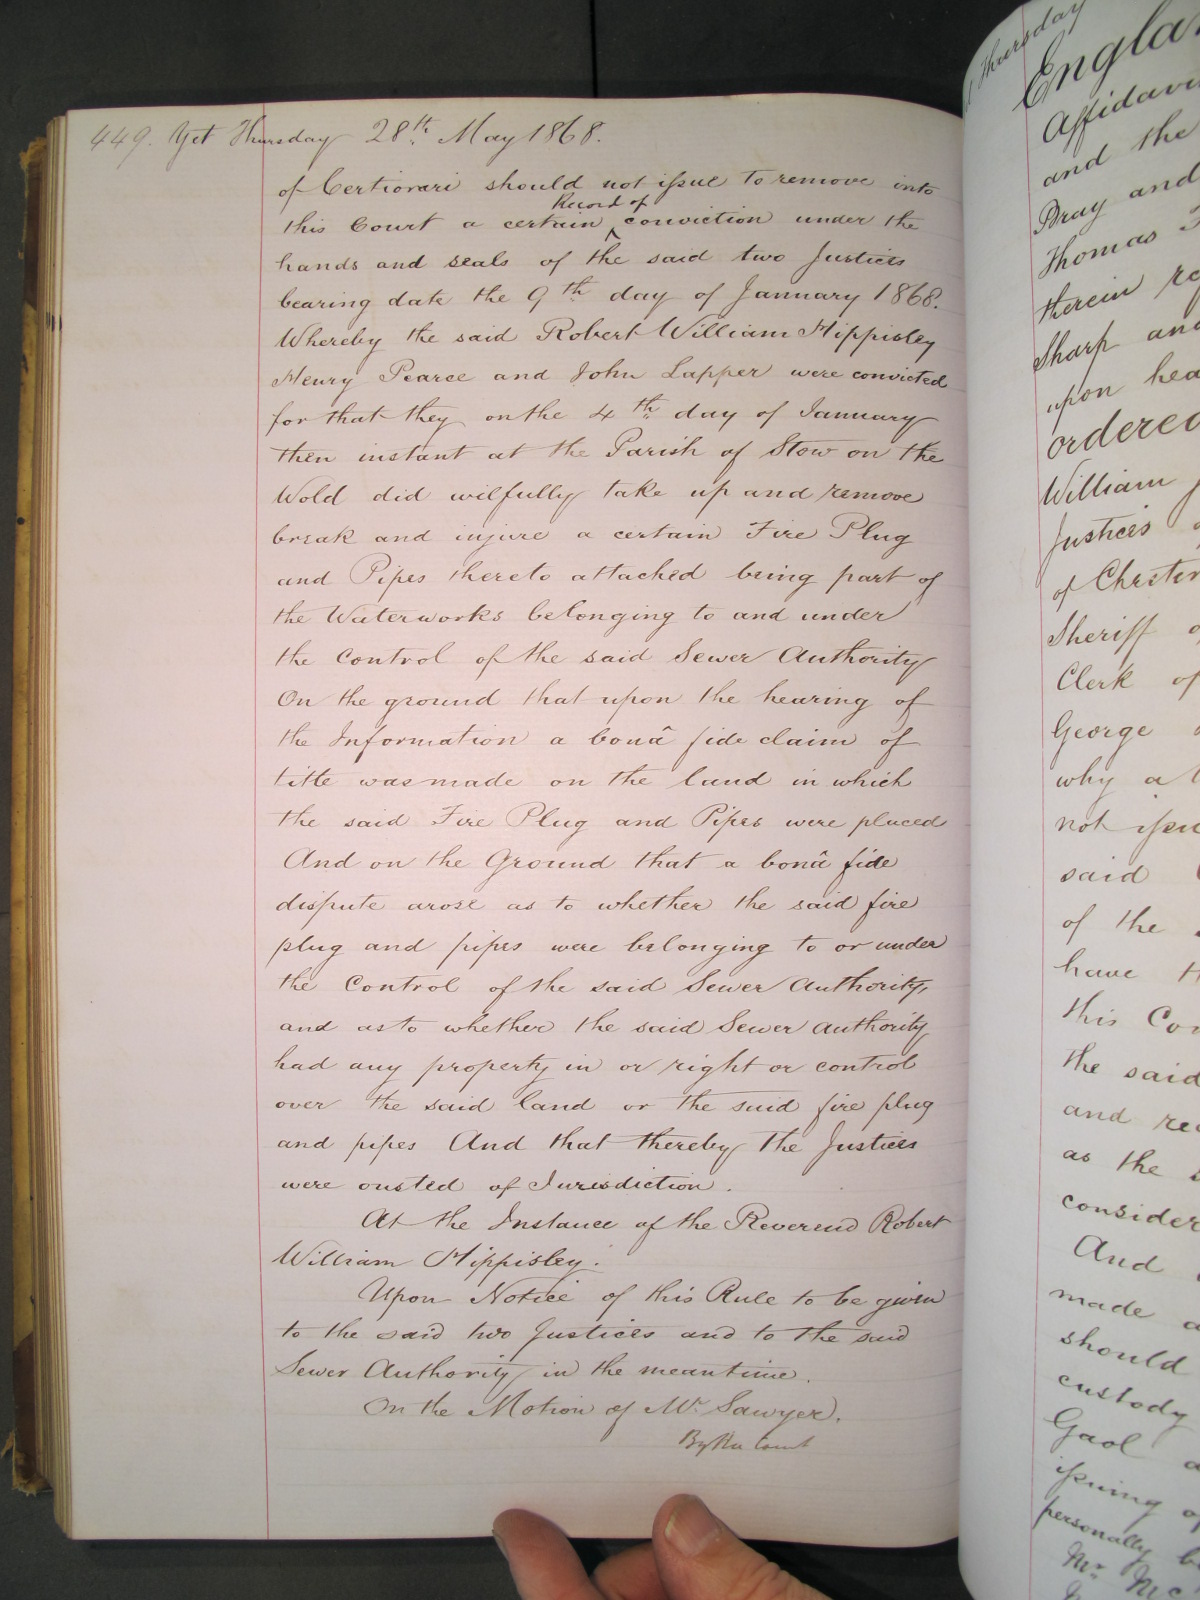 449. Yet Thursday 28th May 1868.
of Certiorari should not issue to remove into
this Court a certain Record of conviction under the
hands and seals of the said two Justices
bearing date the 9th day of January 1868.
Whereby the said Robert William Hippisley
Henry Pearce and John Lapper were convicted
for that they on the 4th day of January
then instant at the Parish of Stow on the
Wold did wilfully take up and remove
break and injure a certain Fire Plug
and Pipes thereto attached being part of
the Waterworks belonging to and under
the control of the said Sewer Authority
On the ground that upon the hearing of
the Information a bonâ fide claim of
title was made on the land in which
the said Fire Plug and Pipes were placed
And on the Ground that a bonâ fide
dispute arose as to whether the said fire
plug and pipes were belonging to or under
the Control of the said Sewer Authority,
and as to whether the said Sewer authority
had any property in or right or control
over the said land or the said fire plug
and pipes And that thereby the Justices
were ousted of Jurisdiction.
At the Instance of the Reverend Robert
William Hippisley.
Upon Notice of this Rule to be given
to the said two Justices and to the said
Sewer Authority in the meantime.
On the Motion of Mr Sawyer.
By the Court
Thursday
Affidavi
and the
Bray and
Thomas
therein
Sharp and
upon hea
ordered
William
Justices
of Chester
Sheriff
Clerk of
George
why a
not issu
said
of the
have
this Co
the said
and re
as the
consider
And
made a
should
custody
Gaol a
issuing of
personally b
Mr Mc